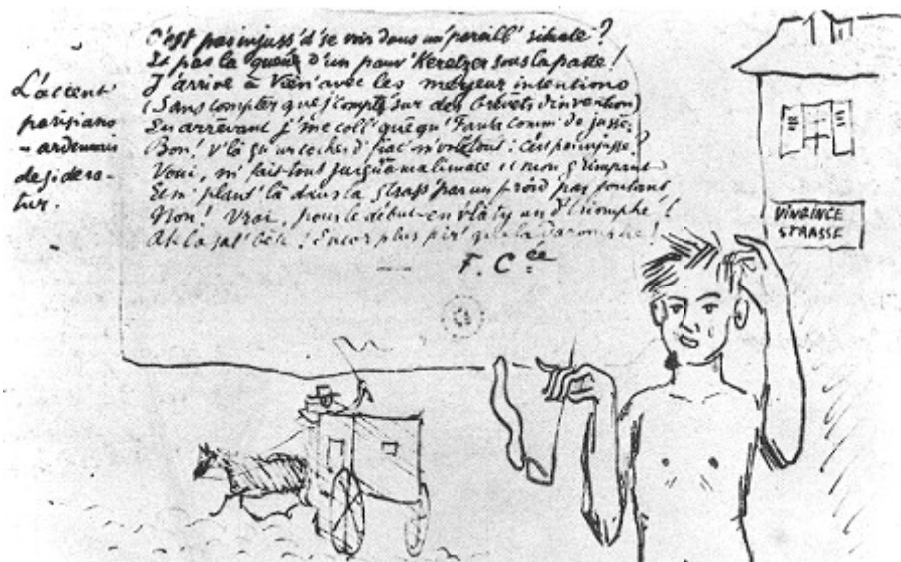 C'est pas injuss' d'se voir dans un' pareill' situate ?
Et pas la queu' d'un pauv' Keretzer sous la patte !
J'arrive à Vienn' avec les meyeur intentions
(Sans compter que j'compt' sur des brevets d'invention)
En arrêvant j'me coll' quéqu' Fanta comm' de juste.
Bon ! V'là qu'un cocher d'fiac' m'vol' tout : c'est pas injusse ?
Voui, m' fait tout jusqu'à ma limace et mon grimpant
Et m' plant' là dans la Strass' par un froid pas foutant
Non ! Vrai, pour le début en v'là ty un d'triomphe !
Ah la sal' bête ! Encor plus pir' que la daromphe !
F. C.ée
L'accent
parisiano
- ardennais
desidera-
tur.
VINGINCE
STRASSE